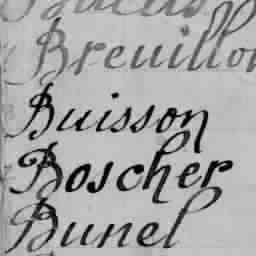 Breuillon
Buisson
Boscher
Bunel